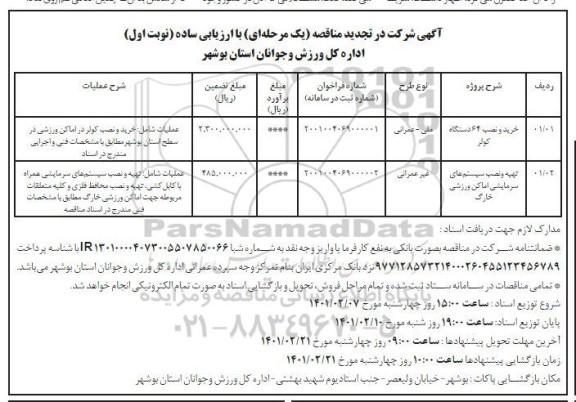 آگهی شرکت در تجدید مناقصه (یک مرحله‌ای) با ارزیابی ساده (نوبت اول)
اداره کل ورزش و جوانان استان بوشهر
ردیف شرح پروژه نوع طرح شماره فراخوان (شماره ثبت در سامانه) مبلغ برآورد (ریال) مبلغ تضمین (ریال) شرح عملیات
۰۱/۰۱ خرید و نصب ۶۴ دستگاه کولر ملی - عمرانی ۲۰۰۱۰۰۴۰۶۹۰۰۰۰۰۱ **** ۲.۳۰۰.۰۰۰.۰۰۰ عملیات شامل: خرید و نصب کولر در اماکن ورزشی در سطح استان بوشهر مطابق با مشخصات فنی و اجرایی مندرج در اسناد
۰۱/۰۲ تهیه و نصب سیستم‌های سرمایشی اماکن ورزشی خارگ غیر عمرانی ۲۰۰۱۰۰۴۰۶۹۰۰۰۰۰۲ **** ۴۸۵.۰۰۰.۰۰۰ عملیات شامل: تهیه و نصب سیستم‌های سرمایشی همراه با کابل کشی، تهیه و نصب محافظ فلزی و کلیه متعلقات مربوطه جهت اماکن ورزشی خارگ مطابق با مشخصات فنی مندرج در اسناد مناقصه
مدارک لازم جهت دریافت اسناد :
* ضمانتنامه شرکت در مناقصه بصورت بانکی به نفع کارفرما یا واریز وجه نقد به شماره شبا
با شناسه پرداخت
نزد بانک مرکزی ایران بنام تمرکز وجوه سپرده عمرانی اداره کل ورزش و جوانان استان بوشهر می‌باشد.
* تمامی مناقصات در سامانه ستاد ثبت شده و تمام مراحل فروش، تحویل و بازگشایی اسناد به صورت تمام الکترونیکی انجام خواهد شد.
شروع توزیع اسناد : ساعت ۱۵:۰۰ روز چهارشنبه مورخ ۱۴۰۱/۰۲/۰۷
پایان توزیع اسناد: ساعت ۱۹:۰۰ روز شنبه مورخ ۱۴۰۱/۰۲/۱۰
آخرین مهلت تحویل پیشنهادها : ساعت ۰۹:۰۰ روز چهارشنبه مورخ ۱۴۰۱/۰۲/۲۱
زمان بازگشایی پیشنهادها ساعت ۱۰:۰۰ روز چهارشنبه مورخ ۱۴۰۱/۰۲/۲۱
مکان بازگشایی پاکات : بوشهر - خیابان ولیعصر - جنب استادیوم شهید بهشتی - اداره کل ورزش و جوانان استان بوشهر
ParsNamadData
پایگاه اطلاع رسانی مناقصه و مزایده
۰۲۱-۸۸۳۴۹۶۷۰-۵